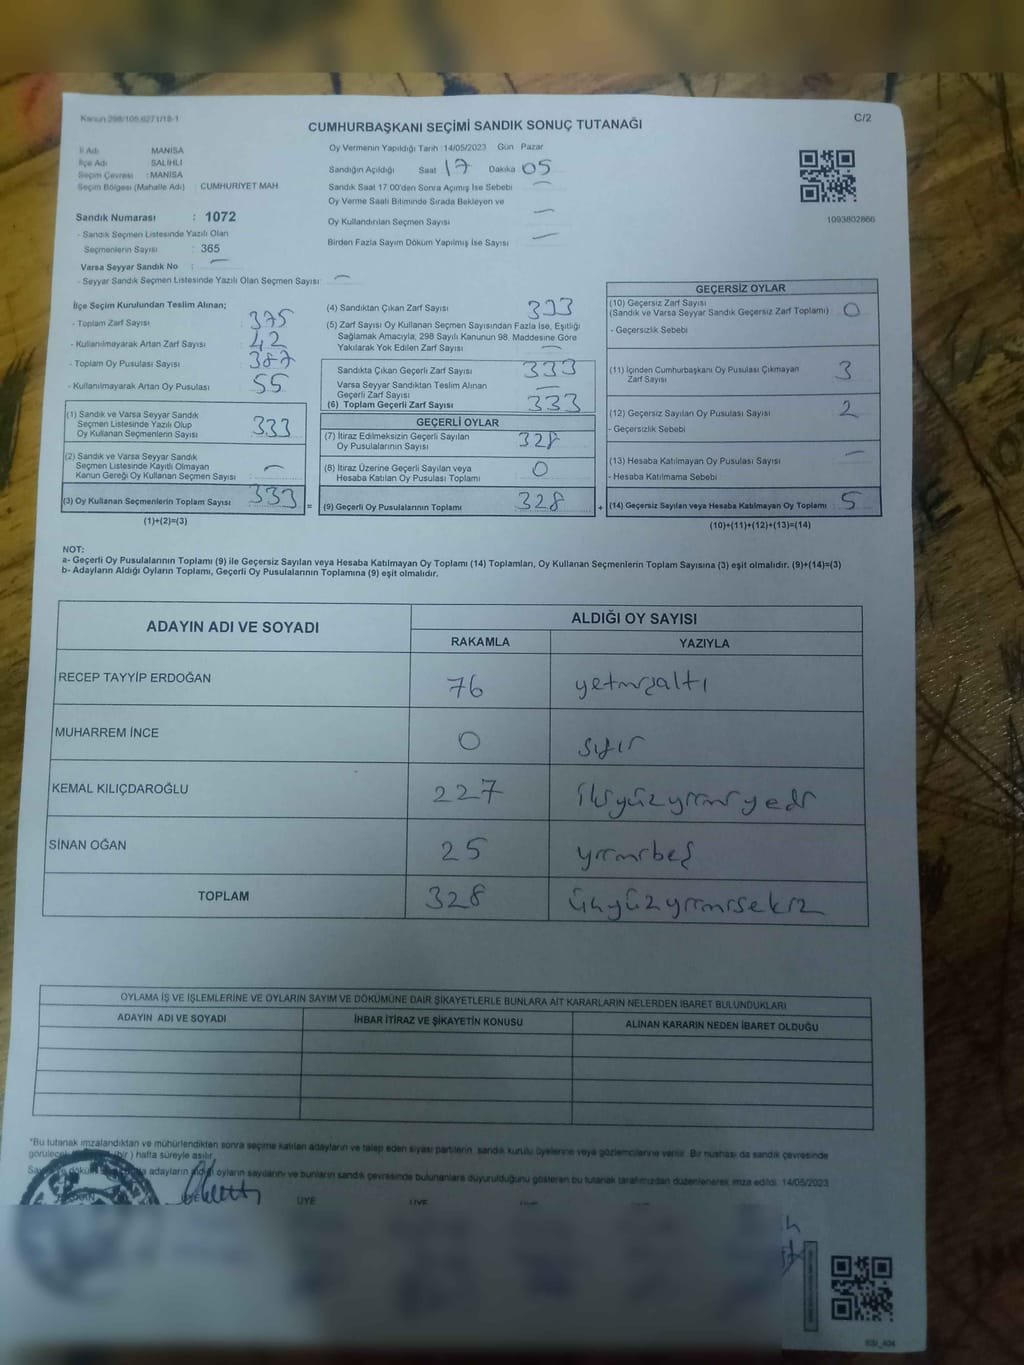 Kanun 298/105,6271/18-1
C/2
CUMHURBAŞKANI SEÇİMİ SANDIK SONUÇ TUTANAĞI
İl Adı MANİSA
İlçe Adı SALİHLİ
Seçim Çevresi : MANİSA
Seçim Bölgesi (Mahalle Adı) : CUMHURİYET MAH.
Sandık Numarası : 1072
- Sandık Seçmen Listesinde Yazılı Olan
Seçmenlerin Sayısı : 365
Varsa Seyyar Sandık No : —
- Seyyar Sandık Seçmen Listesinde Yazılı Olan Seçmen Sayısı : —
Oy Vermenin Yapıldığı Tarih : 14/05/2023 Gün : Pazar
Sandığın Açıldığı Saat 17 Dakika 05
Sandık Saat 17.00'den Sonra Açılmış İse Sebebi —
Oy Verme Saati Bitiminde Sırada Bekleyen ve
Oy Kullandırılan Seçmen Sayısı —
Birden Fazla Sayım Döküm Yapılmış İse Sayısı —
1093802866
İlçe Seçim Kurulundan Teslim Alınan;
- Toplam Zarf Sayısı 375
- Kullanılmayarak Artan Zarf Sayısı 42
- Toplam Oy Pusulası Sayısı 387
- Kullanılmayarak Artan Oy Pusulası 55
(1) Sandık ve Varsa Seyyar Sandık
Seçmen Listesinde Yazılı Olup
Oy Kullanan Seçmenlerin Sayısı 333
(2) Sandık ve Varsa Seyyar Sandık
Seçmen Listesinde Kayıtlı Olmayan
Kanun Gereği Oy Kullanan Seçmen Sayısı —
(3) Oy Kullanan Seçmenlerin Toplam Sayısı 333
(1)+(2)=(3)
(4) Sandıktan Çıkan Zarf Sayısı 333
(5) Zarf Sayısı Oy Kullanan Seçmen Sayısından Fazla İse, Eşitliği
Sağlamak Amacıyla; 298 Sayılı Kanunun 98. Maddesine Göre
Yakılarak Yok Edilen Zarf Sayısı —
Sandıkta Çıkan Geçerli Zarf Sayısı 333
Varsa Seyyar Sandıktan Teslim Alınan
Geçerli Zarf Sayısı —
(6) Toplam Geçerli Zarf Sayısı 333
GEÇERLİ OYLAR
(7) İtiraz Edilmeksizin Geçerli Sayılan
Oy Pusulalarının Sayısı 328
(8) İtiraz Üzerine Geçerli Sayılan veya
Hesaba Katılan Oy Pusulası Toplamı 0
= (9) Geçerli Oy Pusulalarının Toplamı 328
GEÇERSİZ OYLAR
(10) Geçersiz Zarf Sayısı
(Sandık ve Varsa Seyyar Sandık Geçersiz Zarf Toplamı) 0
- Geçersizlik Sebebi
(11) İçinden Cumhurbaşkanı Oy Pusulası Çıkmayan
Zarf Sayısı 3
(12) Geçersiz Sayılan Oy Pusulası Sayısı 2
- Geçersizlik Sebebi
(13) Hesaba Katılmayan Oy Pusulası Sayısı —
- Hesaba Katılmama Sebebi
+ (14) Geçersiz Sayılan veya Hesaba Katılmayan Oy Toplamı 5
(10)+(11)+(12)+(13)=(14)
NOT:
a- Geçerli Oy Pusulalarının Toplamı (9) ile Geçersiz Sayılan veya Hesaba Katılmayan Oy Toplamı (14) Toplamları, Oy Kullanan Seçmenlerin Toplam Sayısına (3) eşit olmalıdır. (9)+(14)=(3)
b- Adayların Aldığı Oyların Toplamı, Geçerli Oy Pusulalarının Toplamına (9) eşit olmalıdır.
ADAYIN ADI VE SOYADI ALDIĞI OY SAYISI
RAKAMLA YAZIYLA
RECEP TAYYİP ERDOĞAN 76 yetmişaltı
MUHARREM İNCE 0 sıfır
KEMAL KILIÇDAROĞLU 227 ikiyüzyirmiyedi
SİNAN OĞAN 25 yirmibeş
TOPLAM 328 üçyüzyirmisekiz
OYLAMA İŞ VE İŞLEMLERİNE VE OYLARIN SAYIM VE DÖKÜMÜNE DAİR ŞİKAYETLERLE BUNLARA AİT KARARLARIN NELERDEN İBARET BULUNDUKLARI
ADAYIN ADI VE SOYADI İHBAR İTİRAZ VE ŞİKAYETİN KONUSU ALINAN KARARIN NEDEN İBARET OLDUĞU
*Bu tutanak imzalandıktan ve mühürlendikten sonra seçime katılan adayların ve talep eden siyasi partilerin, sandık kurulu üyelerine veya gözlemcilerine verilir. Bir nüshası da sandık çevresinde
(bir) hafta süreyle asılır.
adayların aldığı oyların sayılarını ve bunların sandık çevresinde bulunanlara duyurulduğunu gösteren bu tutanak tarafımızdan düzenlenerek imza edildi. 14/05/2023
ÜYE ÜYE